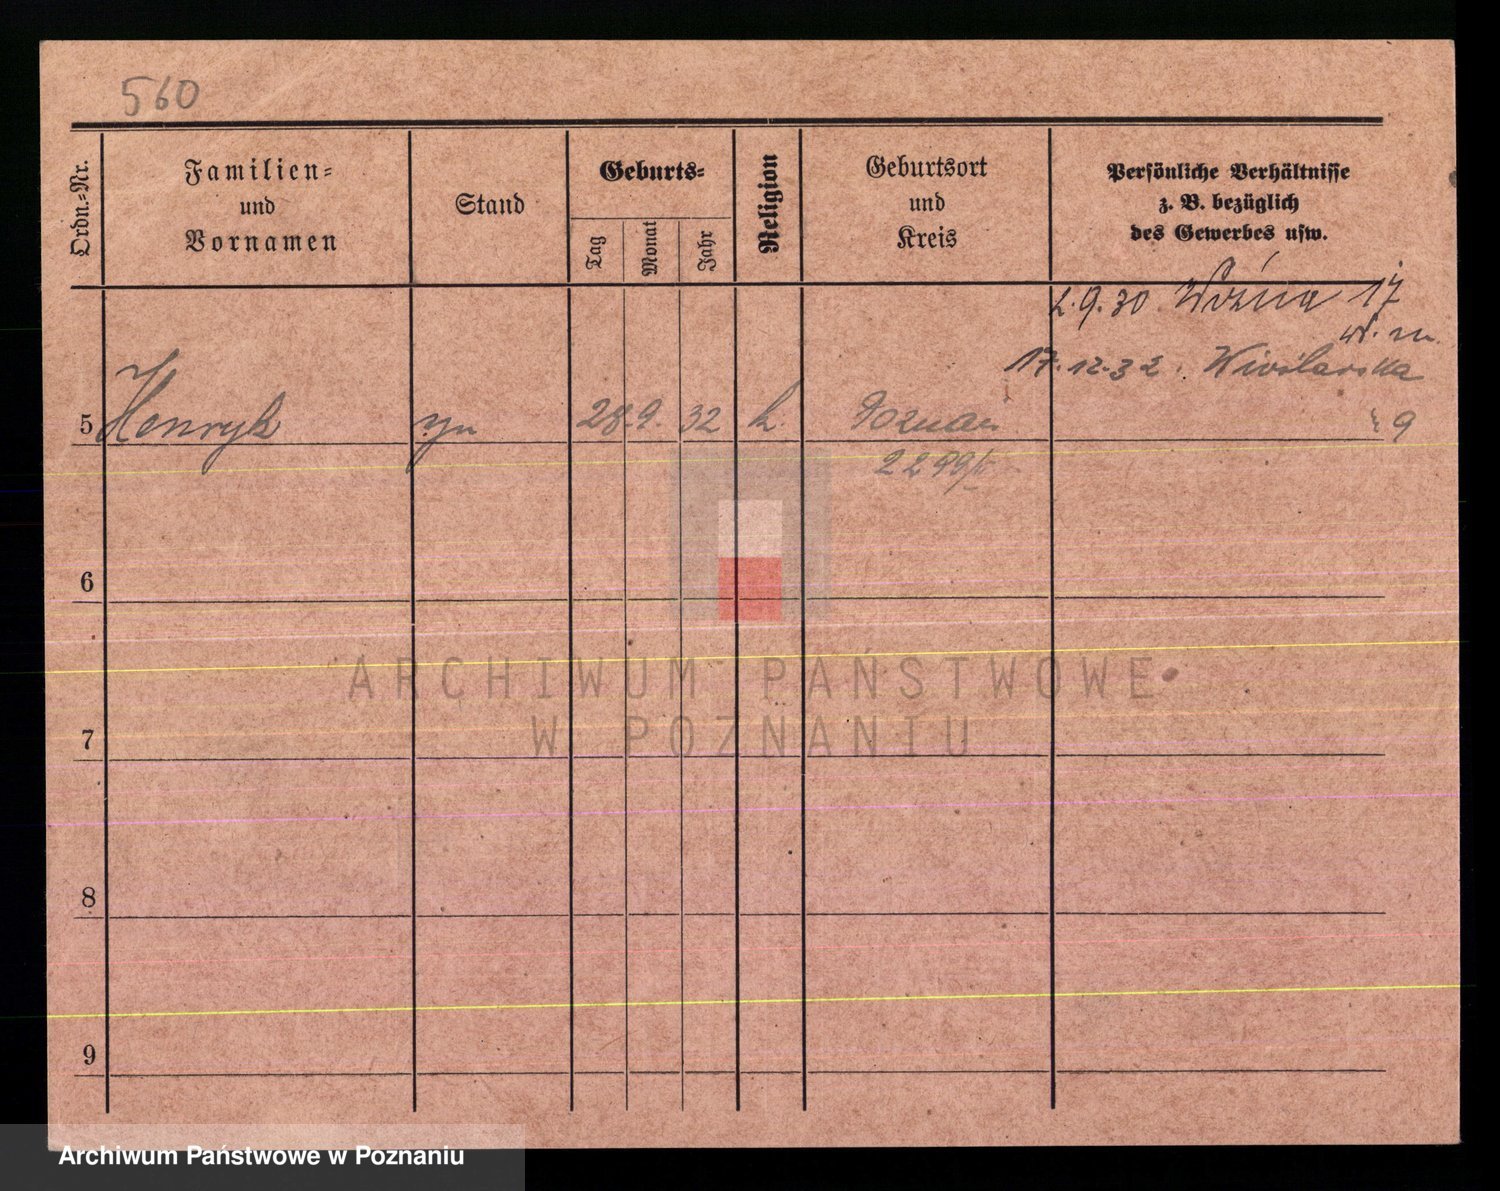 560
Ordn.-Nr.
Familien-
und
Vornamen
Stand
Geburts-
Tag
Monat
Jahr
Religion
Geburtsort
und
Kreis
Persönliche Verhältnisse
z. B. bezüglich
des Gewerbes usw.
2.9.30 Woźna 17
17.12.32.
5 Henryk syn 28.9.32 k. Poznań
9
6
ARCHIWUM PAŃSTWOWE
W POZNANIU
7
8
9
Archiwum Państwowe w Poznaniu